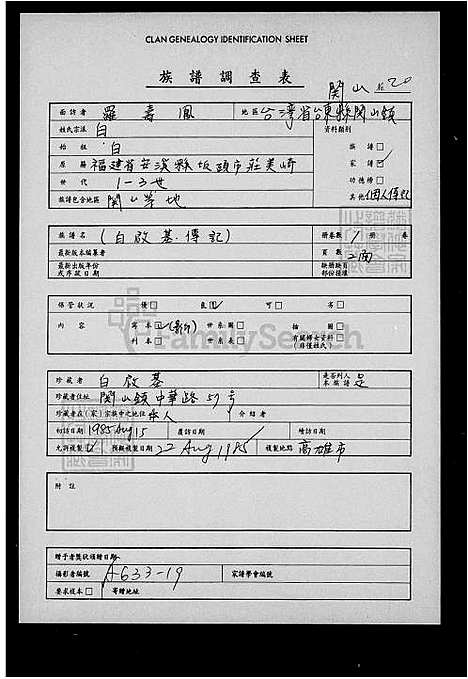 CLAN GENEALOGY IDENTIFICATION SHEET
族譜調查表
関山 20
面訪者 羅壽鳳 地區 台灣省台東縣関山鎮
姓氏宗派 白 資料類別
始祖 白 族譜□
原籍 福建省安溪縣坂頭市莊美崎 家譜☑
世代 1-3世 功德榜□
族譜包含地區 関山等地 其他 個人傳記
族譜名 (白啟基.傳記) 冊卷數 1 冊 卷
最新版本編纂者 頁數 2面
最新出版年份或序跋日期 缺冊缺頁部份括準
保管狀況 優□ 良☑ 可□ 劣□
內容 寫本☑(影印) 世系圖□ 插圖□
刊本□ 世系表□ 有關婦女資料(自僅姓氏)□
FamilySearch
珍藏者 白啟基 是否列入本族譜 是
珍藏者住址 関山鎮中華路59号
珍藏者在(家)宗族中之地位 本人 介紹者
初訪日期 1985 Aug 15 覆訪日期 續訪日期
允許複製☑ 預擬複製日期 22 Aug 1985 複製地點 高雄市
附註
贈予者獎狀頒贈日期
攝影者編號 A633-19 家譜學會編號
要求複本□ 寄贈地址